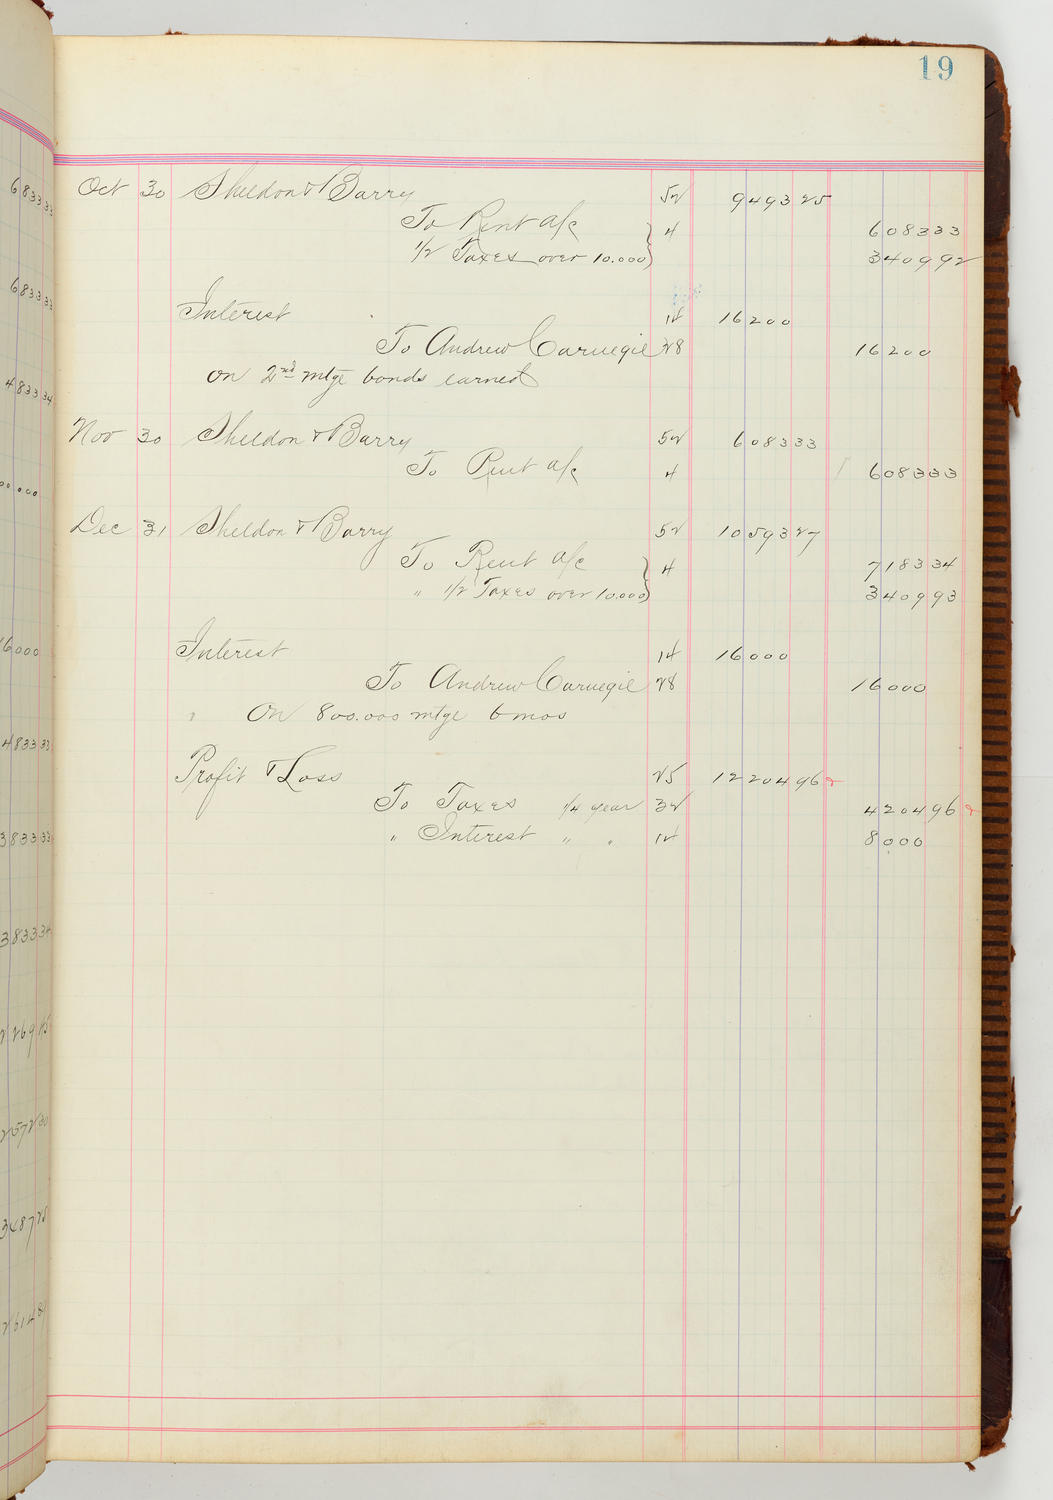 19
Oct 30 Sheldon & Barry 52 9493 25
To Rent a/c } 4 6083 33
1/2 Taxes over 10.000 } 3409 92
Interest 14 16200
To Andrew Carnegie 28 16200
on 2nd mtge bonds earned
Nov 30 Sheldon & Barry 52 6083 33
To Rent a/c 4 6083 33
Dec 31 Sheldon & Barry 52 10593 27
To Rent a/c } 4 7183 34
" 1/2 Taxes over 10.000 } 3409 93
Interest 14 16000
To Andrew Carnegie 28 16000
" On 800.000 mtge 6 mos
Profit & Loss 25 12204 96
To Taxes 1/4 year 32 4204 96
" Interest " " 14 8000
6833 33
6833 33
4833 34
16000
4833 33
3833 33
3833 34